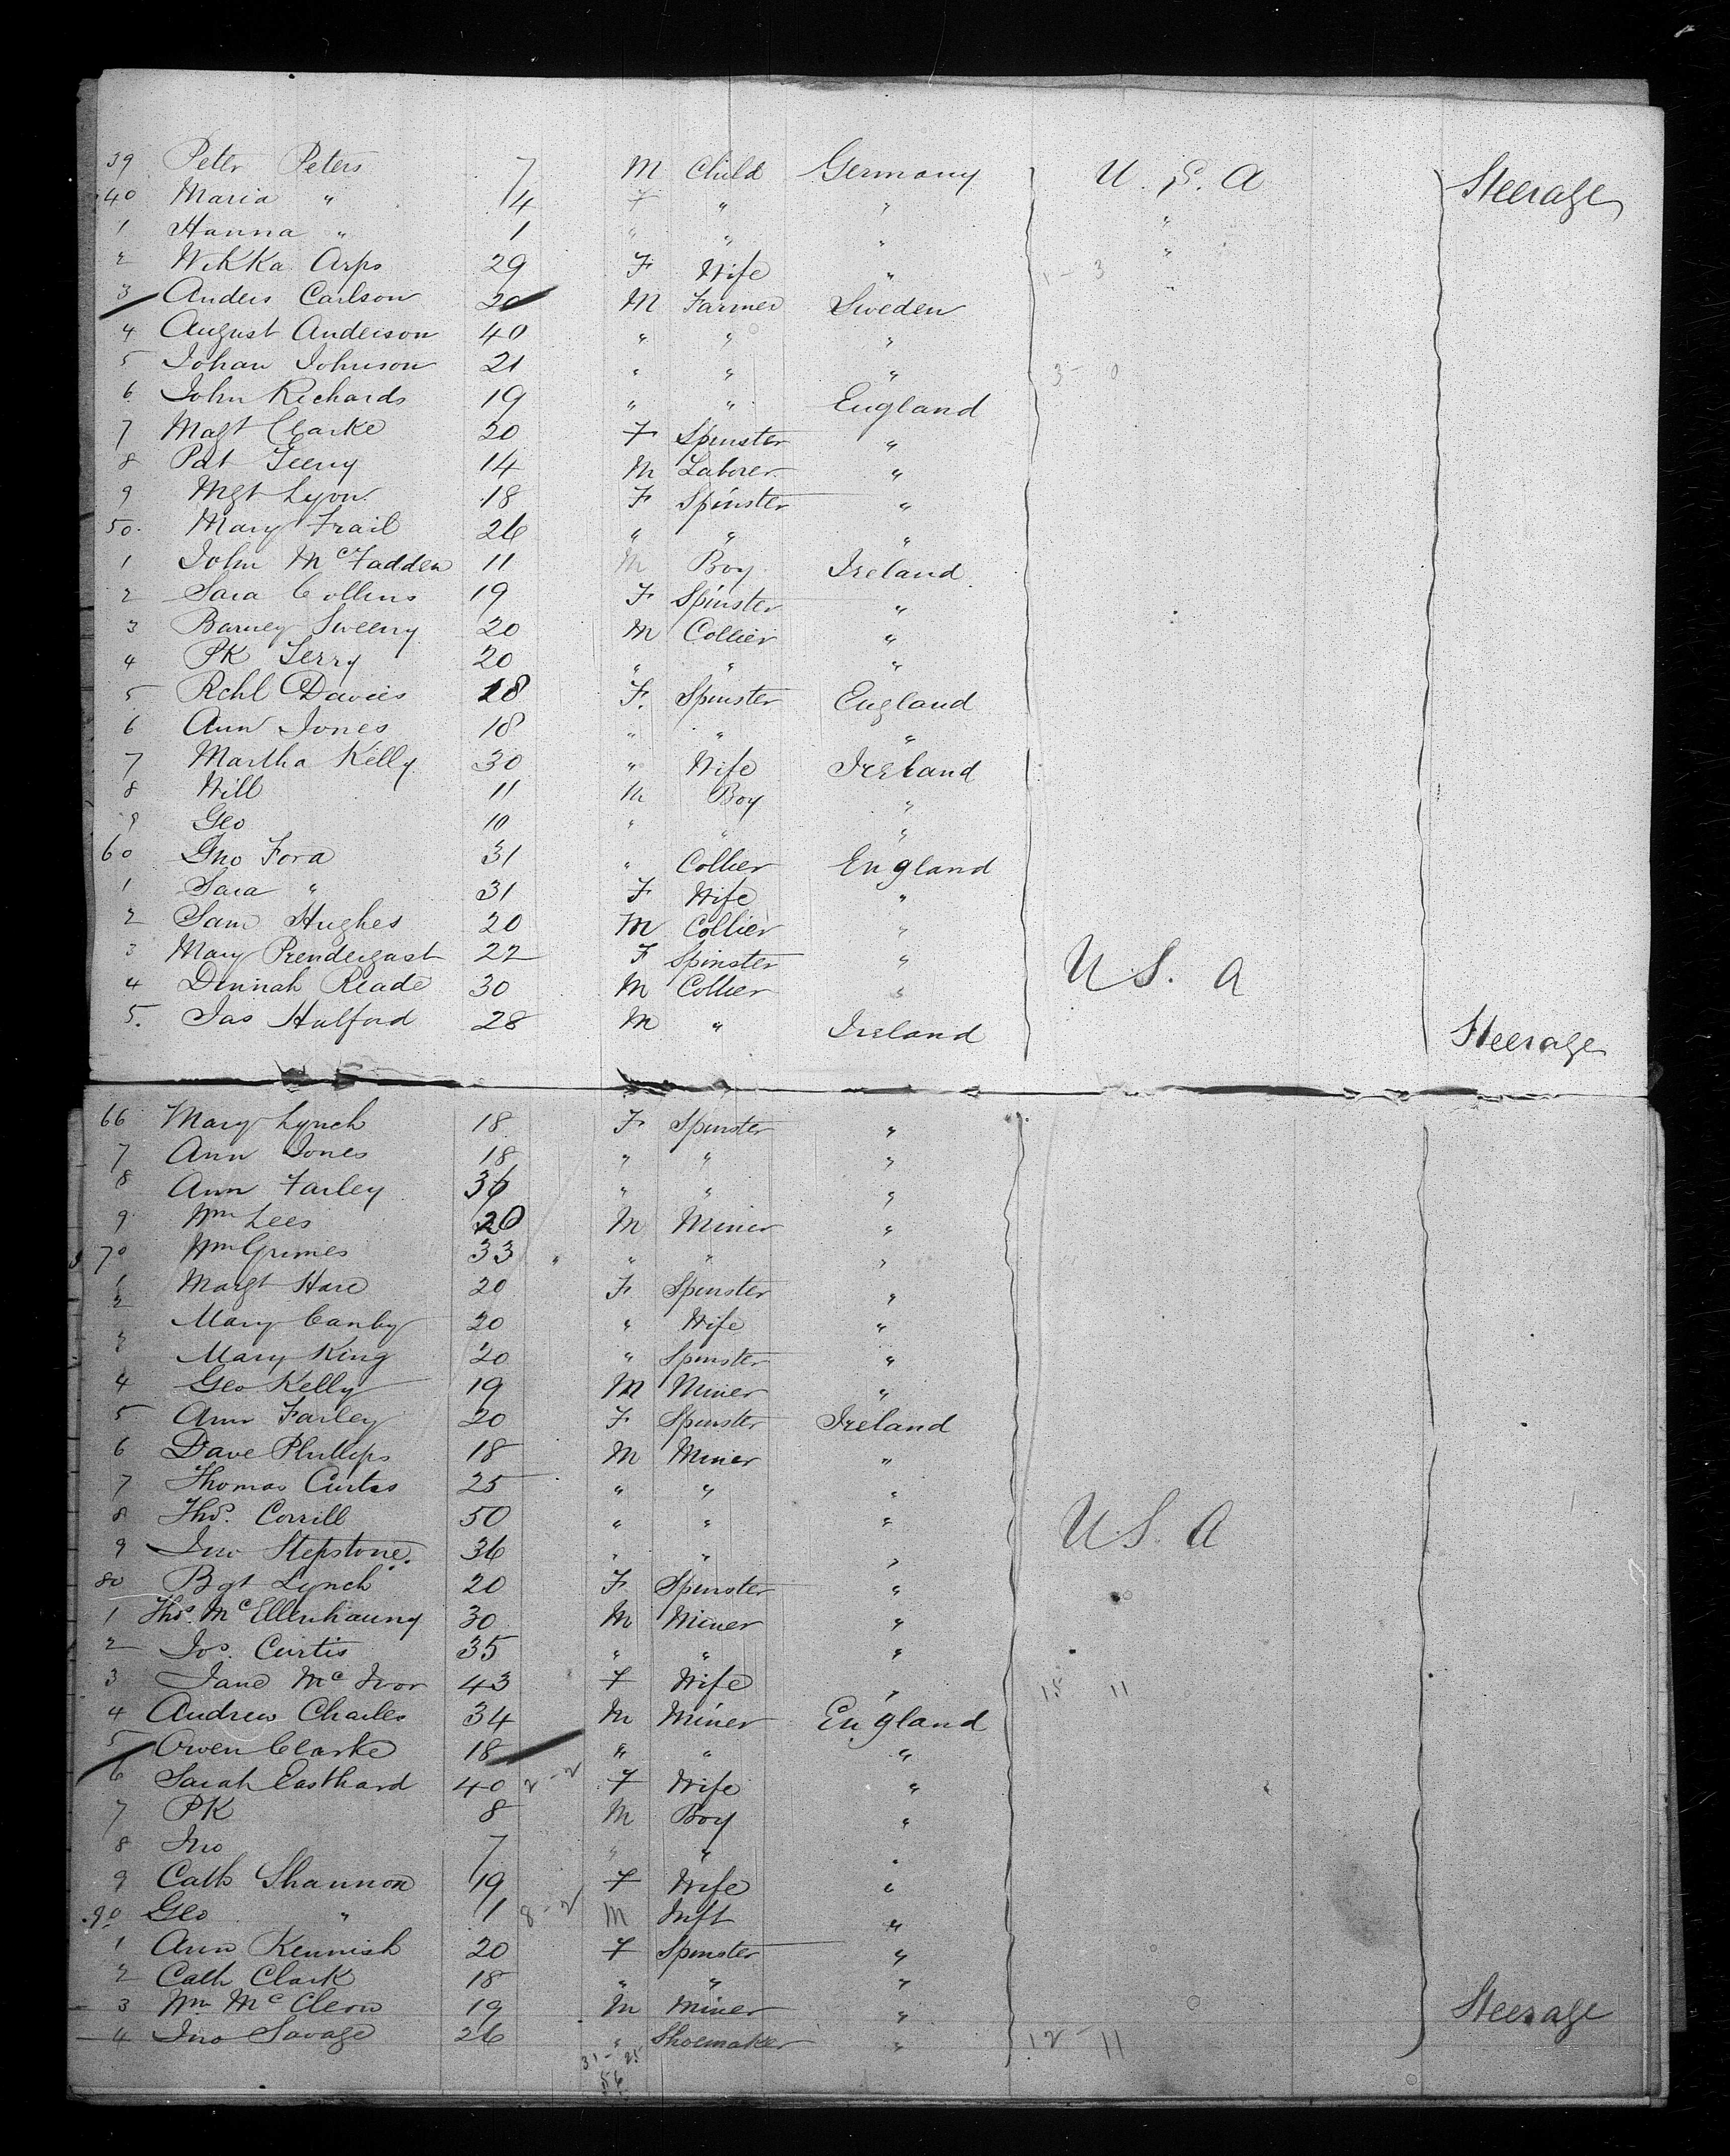 39 Peter Peters 7 M Child Germany U. S. A Steerage
40 Maria " 4 F " " "
1 Hanna " 1 " " " "
2 Wikka Arps 29 F Wife " 1-3
3 Anders Carlson 20 M Farmer Sweden
4 August Anderson 40 " " "
5 Johan Johnson 21 " " " 3-0
6 John Richards 19 " " England
7 Magt Clarke 20 F Spinster "
8 Pat Feeny 14 M Laborer "
9 Mgt Lyon 18 F Spinster "
50. Mary Frail 26 " " "
1 John McFadden 11 M Boy Ireland
2 Sara Collins 19 F Spinster "
3 Barney Sweeny 20 M Collier "
4 PK Terry 20 " " "
5 Rchl Davies 18 F. Spinster England
6 Ann Jones 18 " " "
7 Martha Kelly 30 " Wife Ireland
8 Will 11 M Boy "
9 Geo 10 " " "
60 Jno Fora 31 " Collier England
1 Sara " 31 F Wife "
2 Sam Hughes 20 M Collier "
3 Mary Prendergast 22 F Spinster " U. S. A
4 Dinnah Reade 30 M Collier "
5. Jas Halford 28 M " Ireland Steerage
66 Mary Lynch 18 F Spinster "
7 Ann Jones 18 " " "
8 Ann Farley 36 " " "
9 Wm Lees 20 M Miner "
70 Wm Grimes 33 " " "
1 Margt Hare 20 F Spinster "
2 Mary Canby 20 " Wife "
3 Mary King 20 " Spinster "
4 Geo Kelly 19 M Miner "
5 Ann Farley 20 F Spinster Ireland
6 Dave Phillips 18 M Miner "
7 Thomas Curtis 25 " " "
8 Thos. Corrill 50 " " " U. S. A
9 Jno Stepstone. 36 " " "
80 Bgt Lynch 20 F Spinster "
1 Thos. McEllenhauny 30 M Miner "
2 Jos. Curtis 35 " " "
3 Jane McIvor 43 F Wife " 15 11
4 Andrew Charles 34 M Miner England
5 Owen Clarke 18 " " "
6 Sarah Easthard 40 2-2 F Wife "
7 PK 8 M Boy "
8 Jno 7 " " "
9 Cath Shannon 19 F Wife "
90 Geo " 1 8-2 M Inft "
1 Ann Kennish 20 F Spinster "
2 Cath Clark 18 " " "
3 Wm McCleow 19 M Miner " Steerage
4 Jno Savage 26 " Shoemaker " 12-11
31-25
56